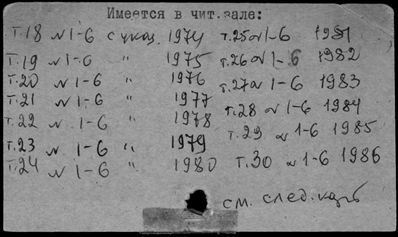 Имеется в чит.зале:
т.18 №1-6 с указ. 1974 т.25№1-6 1981
т.19 №1-6 " 1975 т.26№1-6 1982
т.20 №1-6 " 1976 т.27№1-6 1983
т.21 №1-6 " 1977 т.28 №1-6 1984
т.22 №1-6 " 1978 т.29 №1-6 1985
т.23 №1-6 " 1979 т.30 №1-6 1986
т.24 №1-6 " 1980
см. след. карт